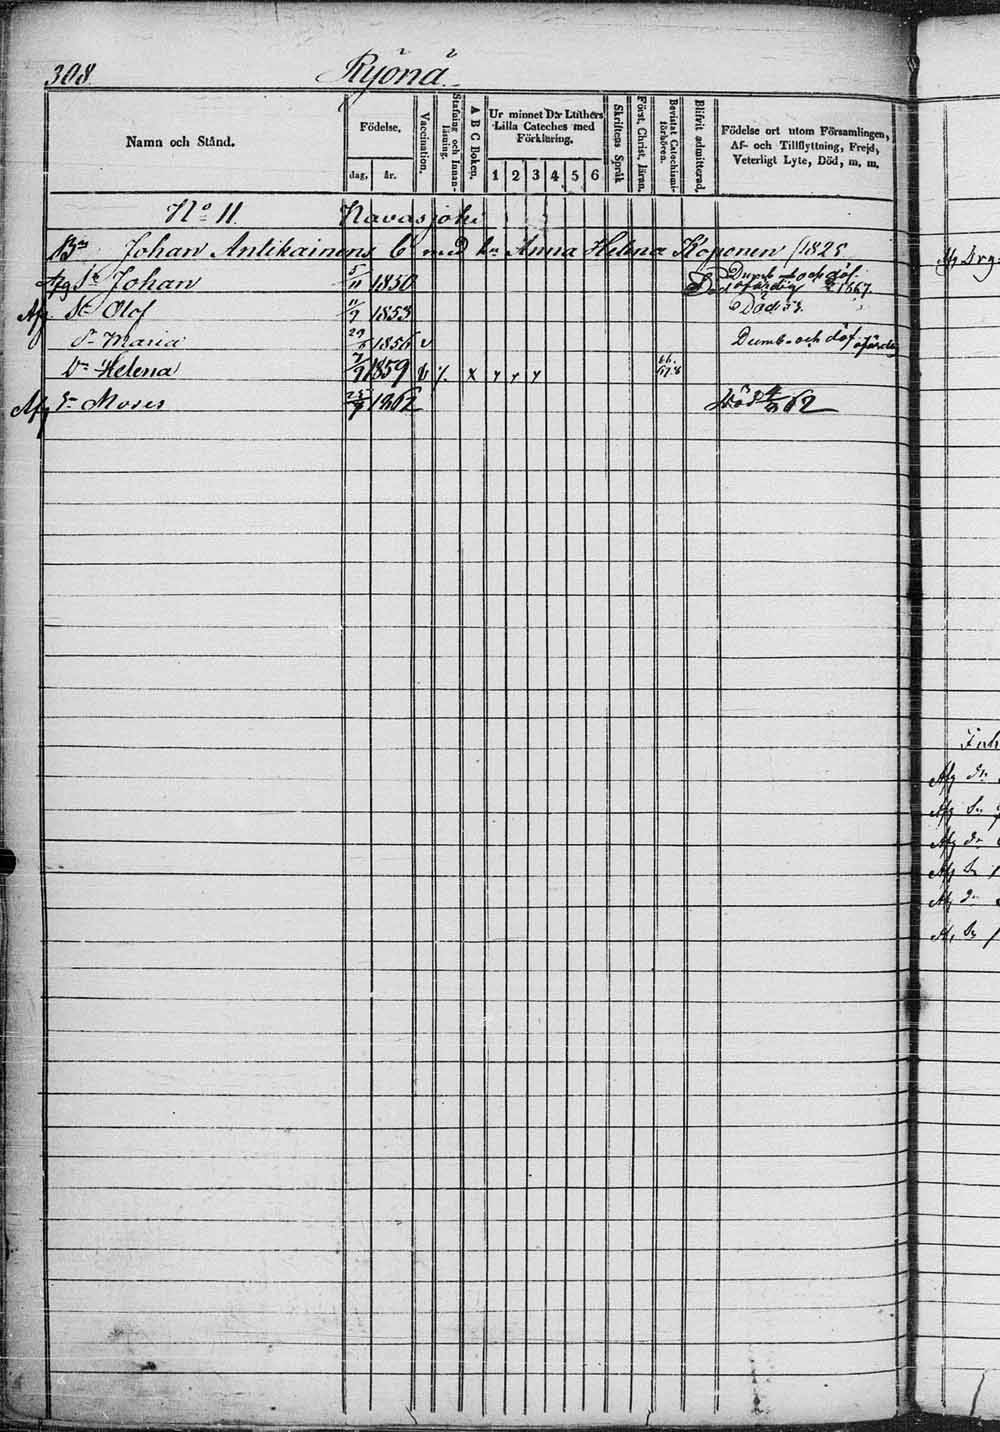 308. Ryönä
Namn och Stånd.
Födelse,
dag, år.
Vaccination.
Stafning och Innan-läsning.
A B C Boken.
Ur minnet D:r Luthers
Lilla Cateches med
Förklaring.
1 2 3 4 5 6
Skriftens Språk
Först. Christ. läran.
Bevistat Catechismi-förhören.
Blifvit admitterad.
Födelse ort utom Församlingen,
Af- och Tillflyttning, Frejd,
Veterligt Lyte, Död, m. m.
No 11. Navasjoki
Johan Antikainens E med hu Anna Helena Koponen 1825
Afg Sn Johan 5/11 1850 Dumb och döf ofärdig Död 1867.
Afg Sn Olof 11/9 1853 Död 53.
Dr Maria 29/5 1856 v Dumb- och döf ofärdig
Dr Helena 7/9 1859 v x 66. 67.8
Afg Sn Moses 25/7 1862 Död 62
Afg
Afg dr
Afg Sn
Afg dr
Afg Sn
Afg dr